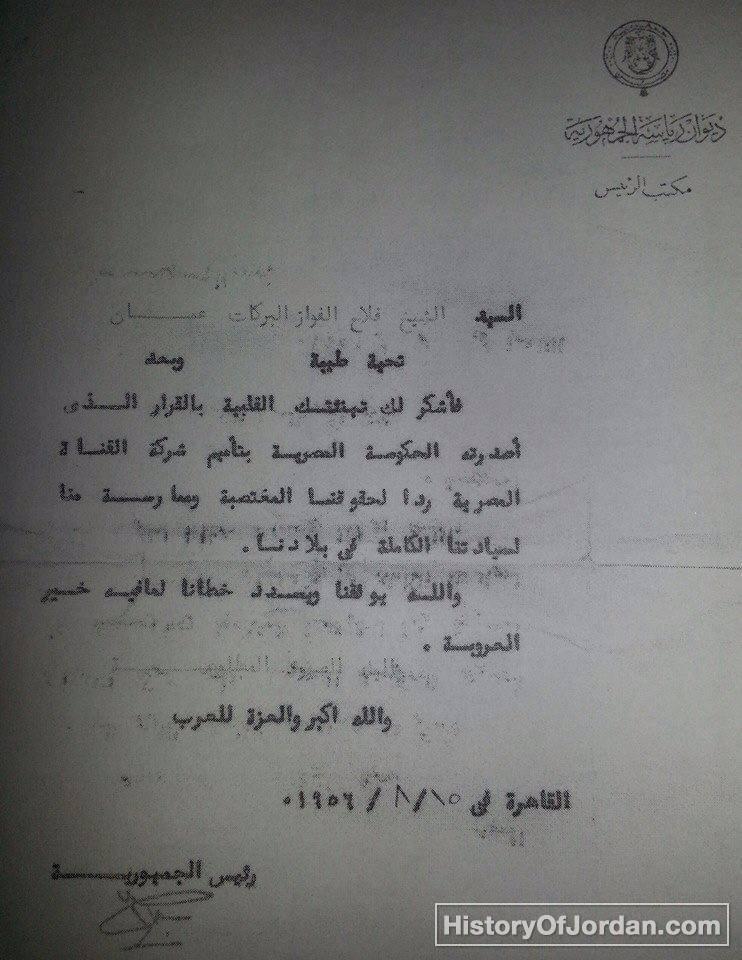 ديوان رياسة الجمهورية
مكتب الرئيس
السيد الشيخ فلاح الفواز البركات عمـــــان
تحية طيبة وبعد
فأشكر لك تهنئتك القلبية بالقرار الـذى
أصدرته الحكومة المصرية بتأميم شركة القنـاة
المصرية ردا لحقوقنـا المغتصبة وممارســة منا
لسيادتنا الكاملة فى بلادنـا .
واللـه يوفقنا ويسـدد خطانا لمافيـه خـير
العروبـة .
والله اكبر والعزة للعرب
القاهرة فى ١٠/ ٨/ ١٩٥٦.
رئيس الجمهوريـــــة
HistoryOfJordan.com